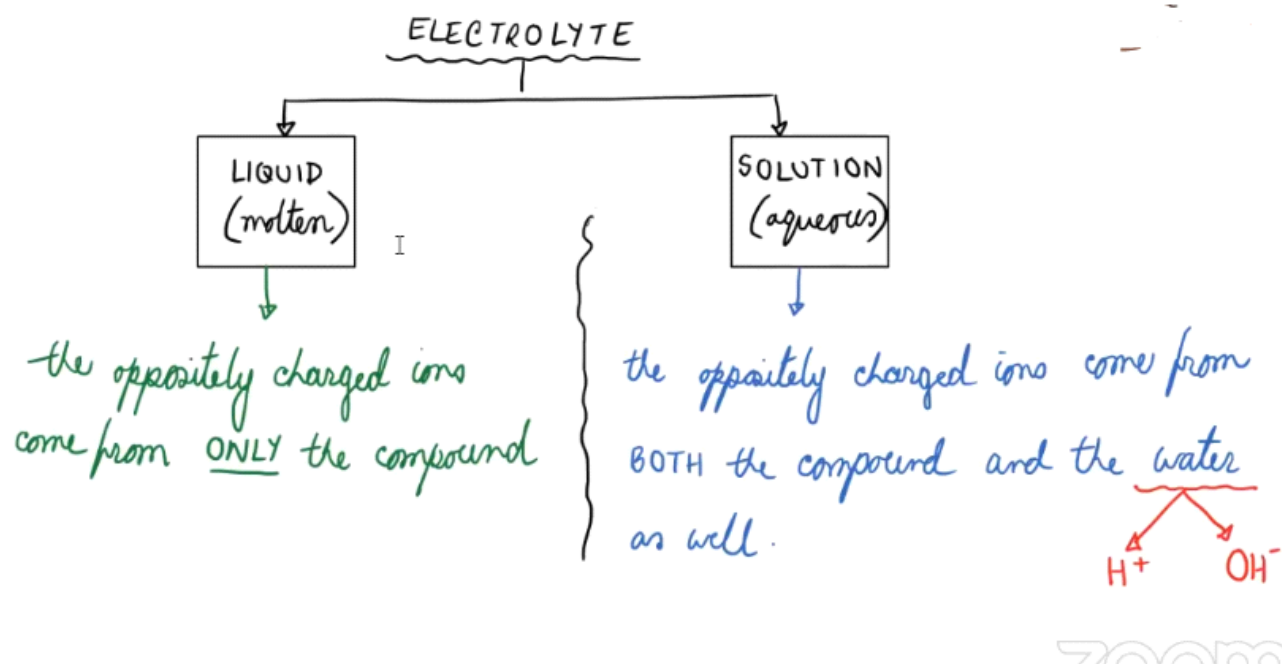 ELECTROLYTE
LIQUID
(molten)
SOLUTION
(aqueous)
the oppositely charged ions
come from ONLY the compound
the oppositely charged ions come from
BOTH the compound and the water
as well.
H+
OH-
zoom